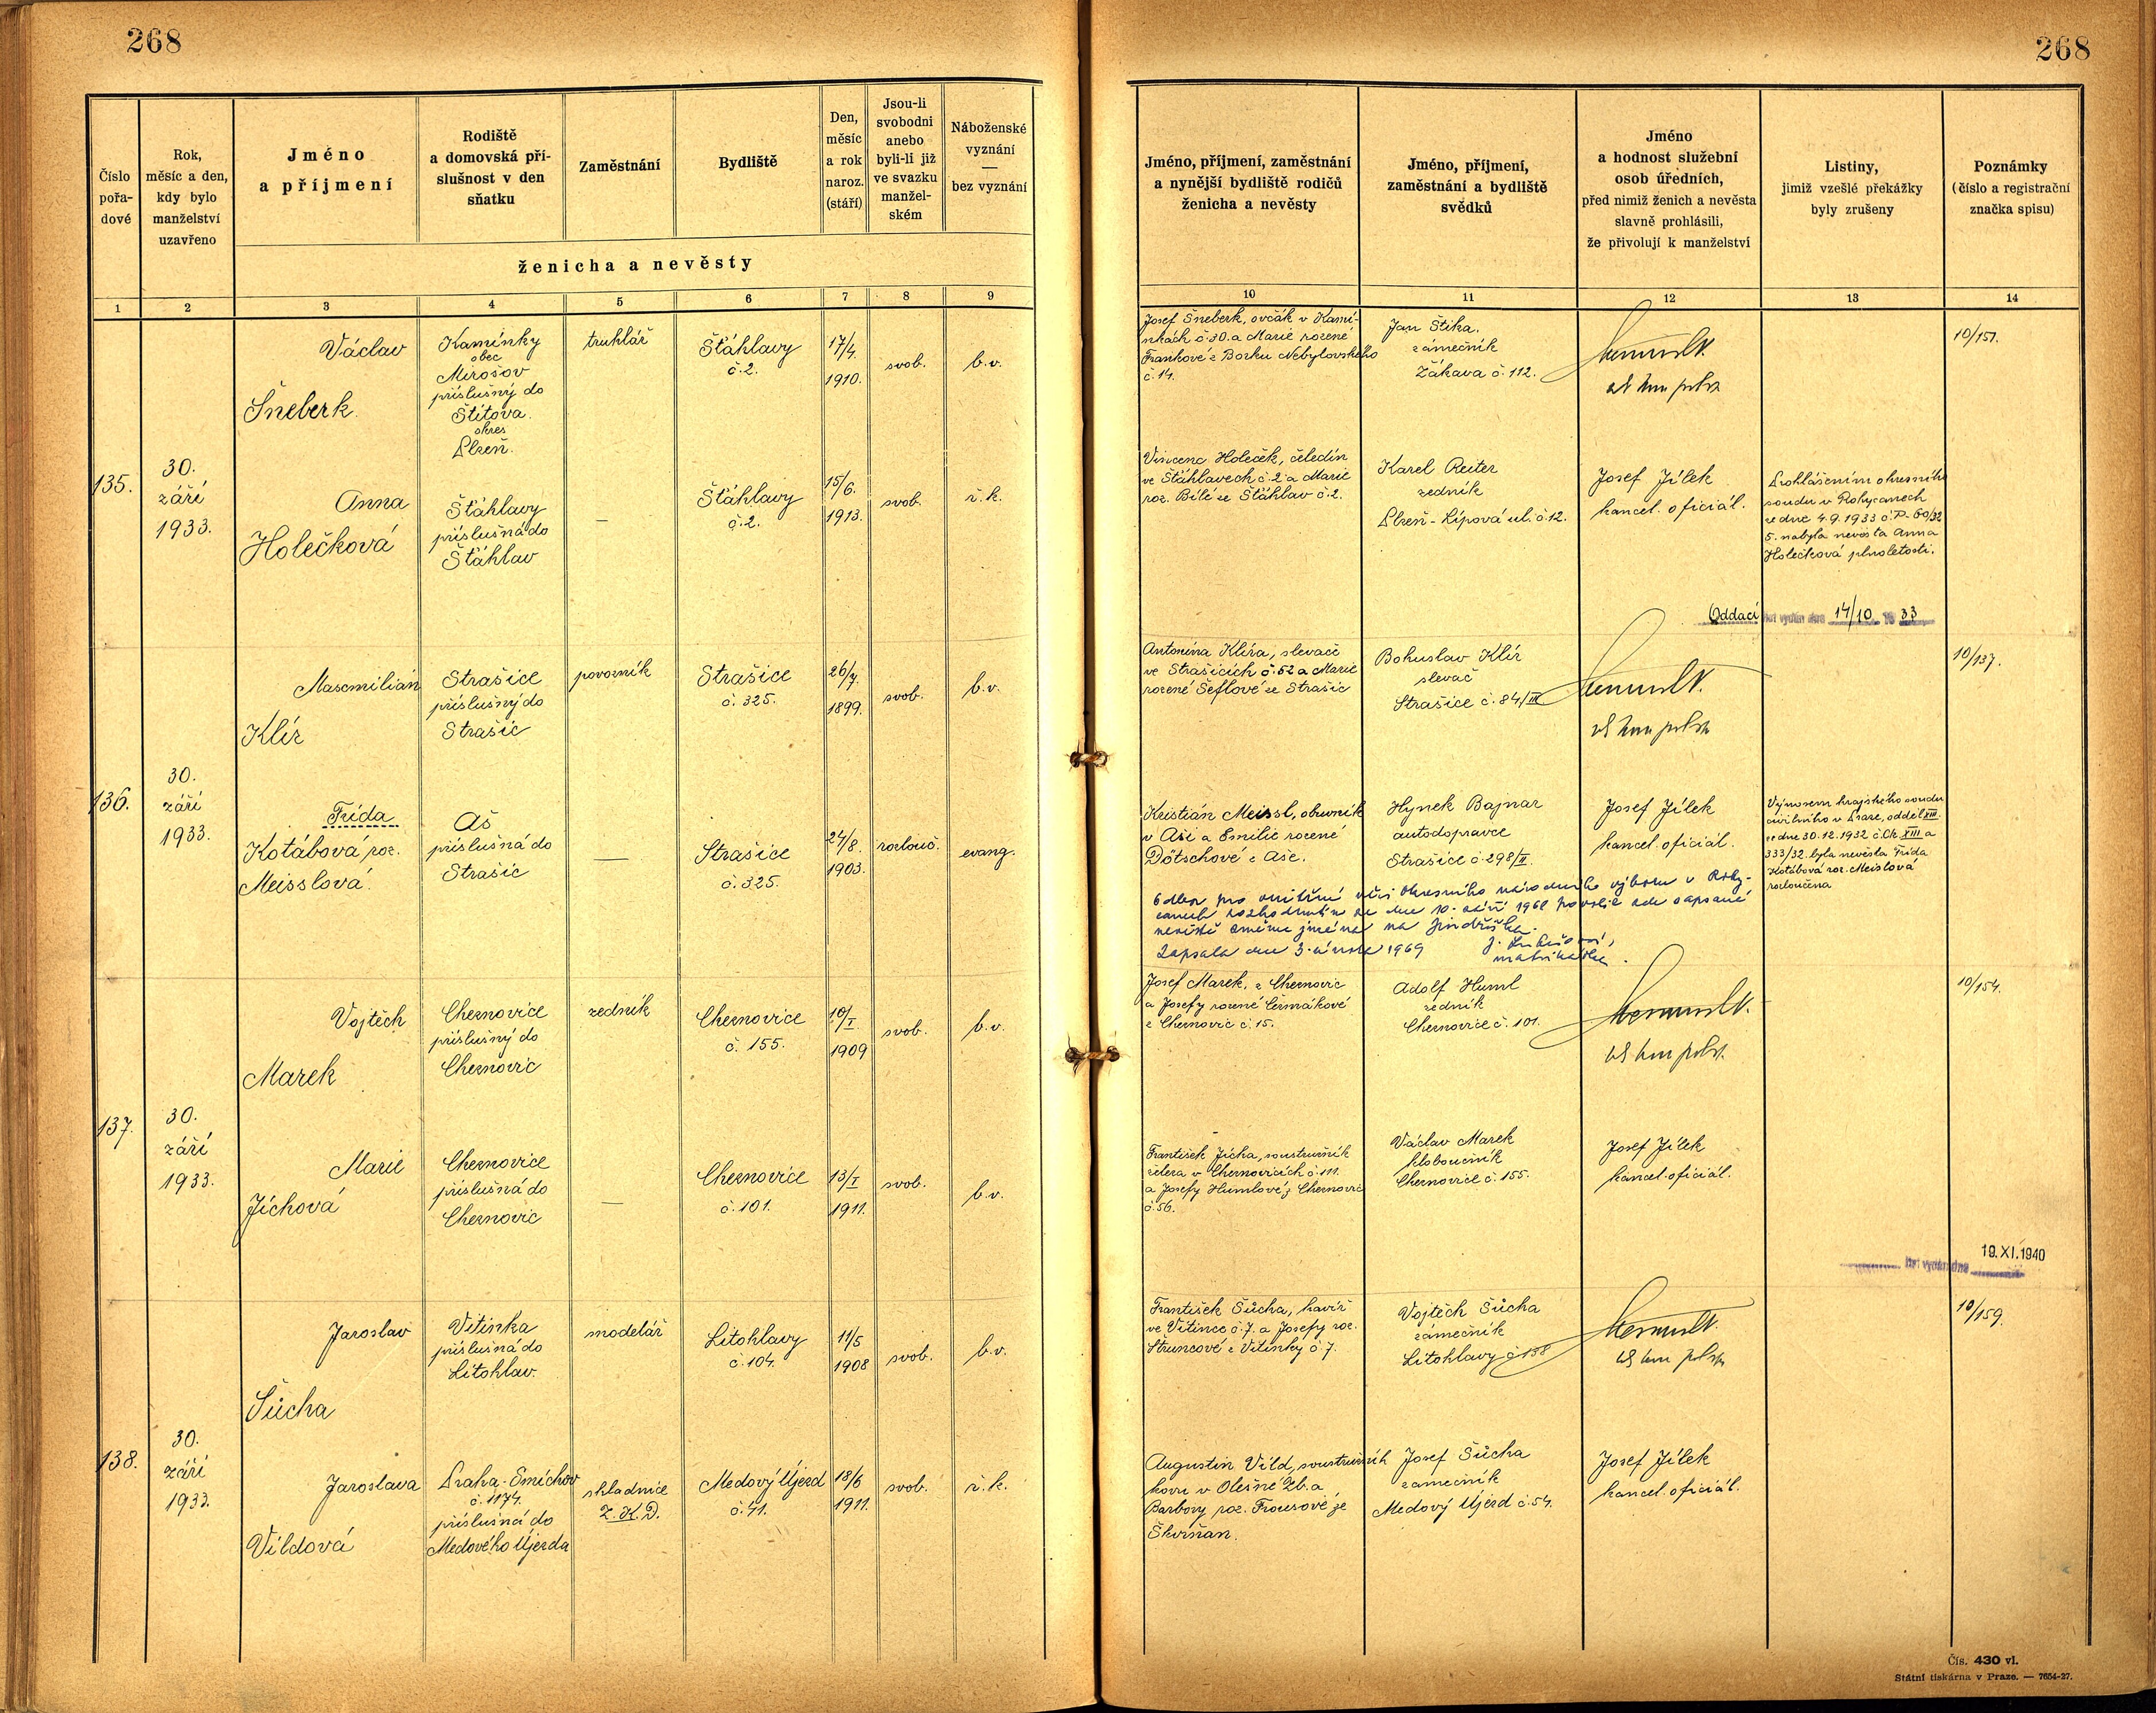 268
268
Číslo pořa- dové
Rok, měsíc a den, kdy bylo manželství uzavřeno
Jméno a příjmení
Rodiště a domovská pří- slušnost v den sňatku
Zaměstnání
Bydliště
Den, měsíc a rok naroz. (stáří)
Jsou-li svobodni anebo byli-li již ve svazku manžel- ském
Náboženské vyznání — bez vyznání
ženicha a nevěsty
Jméno, příjmení, zaměstnání a nynější bydliště rodičů ženicha a nevěsty
Jméno, příjmení, zaměstnání a bydliště svědků
Jméno a hodnost služební osob úředních, před nimiž ženich a nevěsta slavně prohlásili, že přivolují k manželství
Listiny, jimiž vzešlé překážky byly zrušeny
Poznámky (číslo a registrační značka spisu)
1 2 3 4 5 6 7 8 9 10 11 12 13 14
135.
30. září 1933.
Václav
Šneberk.
Kamínky
obec
Mirošov
příslušný do
Štítova.
okres
Plzeň.
truhlář
Šťáhlavy
č. 2.
17/4.
1910.
svob.
b.v.
Josef Šneberk, ovčák v Kamí-
nkách č. 30. a Marie rozené
Frankové z Borku Nebylovského
č. 14.
Jan Štika.
zámečník
Žákava č. 112.
10/151.
Anna
Holečková
Šťáhlavy
příslušná do
Šťáhlav
—
Šťáhlavy
č. 2.
15/6.
1913.
svob.
ř.k.
Vincenc Holeček, čeledín
ve Šťáhlavech č. 2 a Marie
roz. Bílé ze Šťáhlav č. 2.
Karel Reiter
zedník
Plzeň - Lípová ul. č. 12.
Josef Jílek
kancel. oficiál.
Prohlášením okresního
soudu v Rokycanech
ze dne 4.9.1933 č. P- 60/32
5. nabyla nevěsta Anna
Holečková plnoletosti.
Oddací list vydán dne 14/10. 1933
136.
30. září 1933.
Maxmilián
Klír
Strašice
příslušný do
Strašic
povozník
Strašice
č. 325.
26/7.
1899.
svob.
b.v.
Antonína Klíra, slevače
ve Strašicích č. 52 a Marie
rozené Šeflové ze Strašic
Bohuslav Klír
slevač
Strašice č. 84/III
10/137.
Frída
Kotábová roz.
Meisslová.
Aš
příslušná do
Strašic
—
Strašice
č. 325.
24/8.
1903.
rozlouč.
evang.
Kristián Meissl, obuvník
v Aši a Emilie rozené
Dötschové z Aše.
Hynek Bajnar
autodopravce
Strašice č. 298/II.
Josef Jílek
kancel. oficiál.
Výnosem krajského soudu
civilního v Praze, odděl. XIII.
ze dne 30.12.1932 č. Ck XIII a
333/32. byla nevěsta Frída
Kotábová roz. Meislová
rozloučena
Odbor pro vnitřní věci Okresního národního výboru v Roky-
canech rozhodnutím ze dne 10. září 1968 povolil zde zapsané
nevěstě změnu jména na Jindřiška.
Zapsala dne 3. února 1969
matrikářka.
137.
30. září 1933.
Vojtěch
Marek
Cheznovice
příslušný do
Cheznovic
zedník
Cheznovice
č. 155.
10/I
1909
svob.
b.v.
Josef Marek, z Cheznovic
a Josefy rozené Čermákové
z Cheznovic č. 15.
Adolf Huml
zedník
Cheznovice č. 101.
10/154.
Marie
Jíchová
Cheznovice
příslušná do
Cheznovic
—
Cheznovice
č. 101.
13/I
1911.
svob.
b.v.
František Jícha, soustružník
železa v Cheznovicích č. 111.
a Josefy Humlové z Cheznovic
č. 56.
Václav Marek
kloboučník
Cheznovice č. 155.
Josef Jílek
kancel. oficiál.
list vydán dne 19.XI.1940
138.
30. září 1933.
Jaroslav
Šůcha
Vitinka
příslušná do
Litohlav.
modelář
Litohlavy
č. 104.
11/5
1908
svob.
b.v.
František Šůcha, havíř
ve Vitince č. 7. a Josefy roz.
Struncové z Vitinky č. 7.
Vojtěch Šůcha
zámečník
Litohlavy č. 138
10/159.
Jaroslava
Vildová
Praha - Smíchov
č. 1174.
příslušná do
Medového Újezda
skladnice
Z.K.D.
Medový Újezd
č. 41.
18/6
1911.
svob.
ř.k.
Augustin Vild, soustružník
kovu v Olešné Zb. a
Barbory roz. Frousové ze
Skvrňan.
Josef Šůcha
zámečník
Medový Újezd č. 54.
Josef Jílek
kancel. oficiál.
Čís. 430 vl.
Státní tiskárna v Praze. — 7654-27.